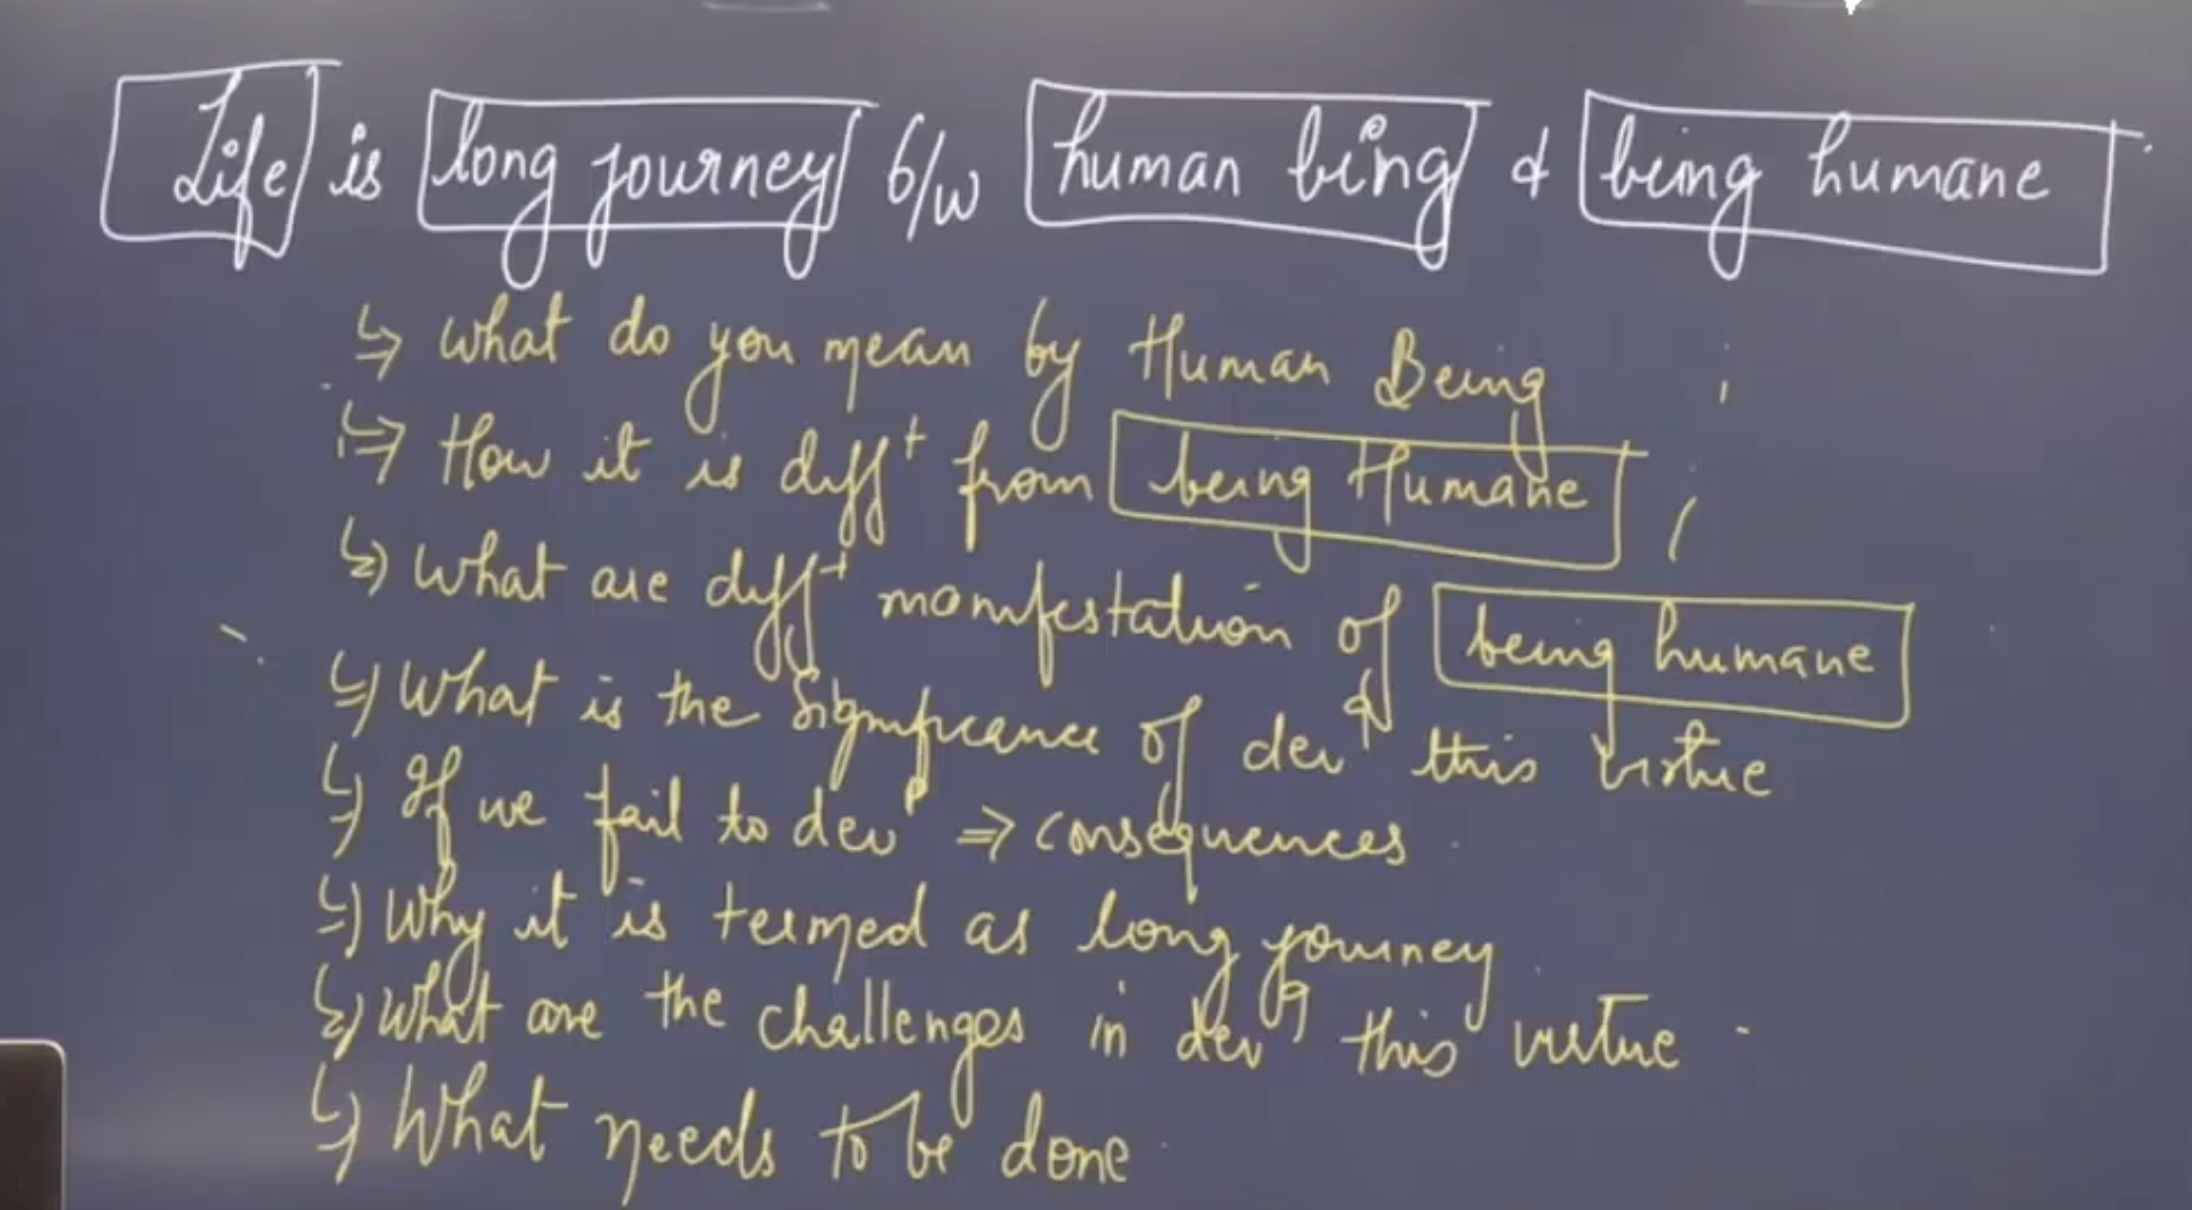 Life is long journey b/w human being & being humane
what do you mean by Human Being
How it is diff^t from being Humane
What are diff^t manifestation of being humane
What is the Significance of dev^g this virtue
If we fail to dev^p => consequences
Why it is termed as long journey
What are the challenges in dev^g this virtue
What needs to be done